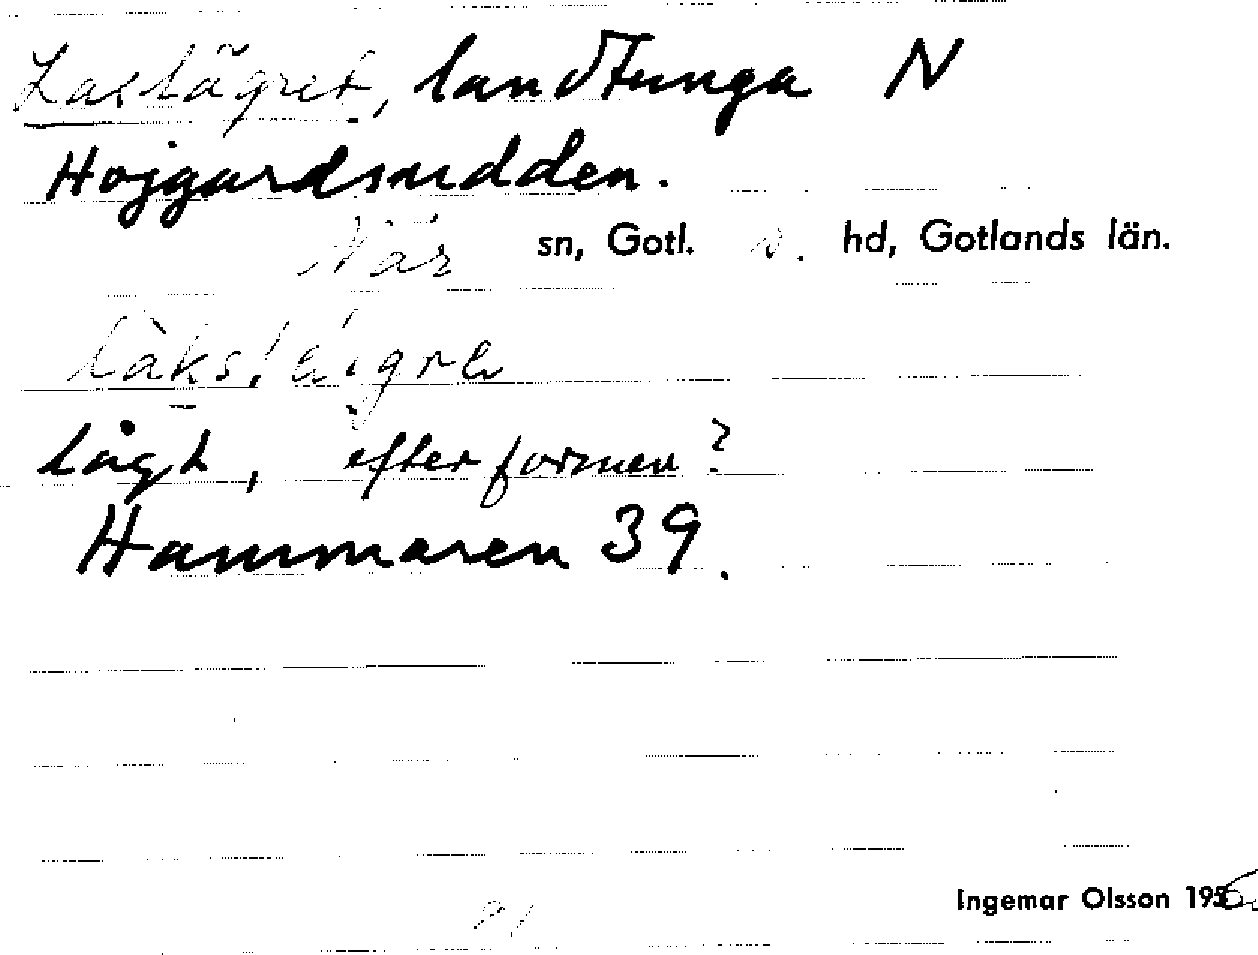 Laxtägret, landtunga N
Hojgardsudden.
När sn, Gotl. s. hd, Gotlands län.
lågt, efter formen?
Hammaren 39.
Ingemar Olsson 1956